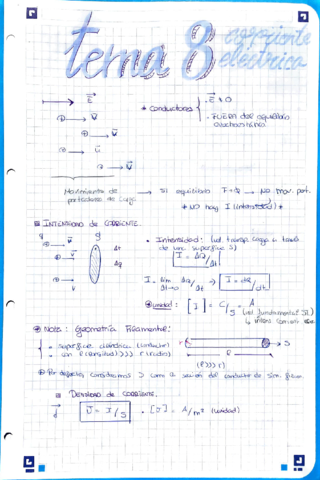 tema 8 corriente eléctrica
E
* conductores
E ≠ 0
FUERA del equilibrio electrostático
⊕→ v
⊕→ v
⊕→ v
→ v
Movimiento de partículas de carga
→ Si equilibrio
→ NO mov. part.
* NO hay I (intensidad) *
INTENSIDAD DE CORRIENTE.
• Intensidad: (vel. transp. carga a través de una superficie S)
I = ΔQ/Δt
Δt
Δq
I = lim Δt→0 ΔQ/Δt → I = dQ/dt
unidad: [I] = C/S = A
(ud fundamental SI)
↳ intens corriente
Nota: Geometría Filamental:
Superficie cilíndrica (conductor)
con l (longitud) >>> r (radio)
r
S
l
(l >>> r)
Por defecto, consideramos S como la sección del conductor
DENSIDAD DE CORRIENTE.
J = I/S
• [J] = A/m² (unidad)